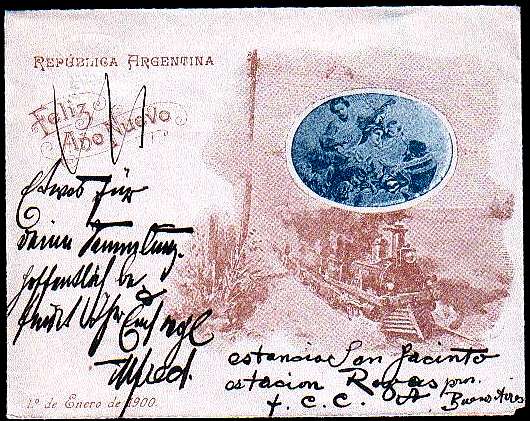 REPÚBLICA ARGENTINA
Feliz
Año Nuevo
Etwas für
deine Sammlung.
hoffentlich be
findet Ihr Euch wohl
Alfred.
estancia San Jacinto
estacion Rojas prov.
F. C. C. A. Buenos Aires
1.º de Enero de 1900.